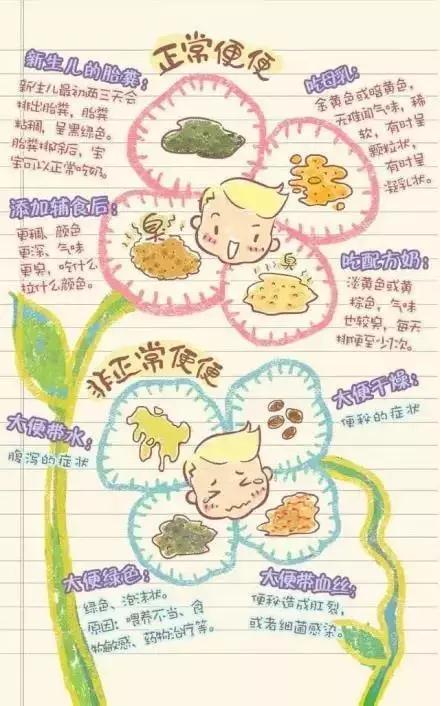 正常便便
新生儿的胎粪:
新生儿最初两三天会
排出胎粪，胎粪
粘稠，呈黑绿色。
胎粪排除后，宝
宝可以正常吃奶。
吃母乳:
金黄色或暗黄色，
无难闻气味，稀
软，有时呈
颗粒状，
有时呈
凝乳状。
添加辅食后:
更稠、颜色
更深、气味
更臭，吃什么
拉什么颜色。
臭
臭
吃配方奶:
淡黄色或黄
棕色，气味
也较臭，每天
排便至少1次。
非正常便便
大便带水:
腹泻的症状
大便干燥:
便秘的症状
大便绿色:
绿色、泡沫状。
原因：喂养不当、食
物敏感、药物治疗等。
大便带血丝:
便秘造成肛裂，
或者细菌感染。